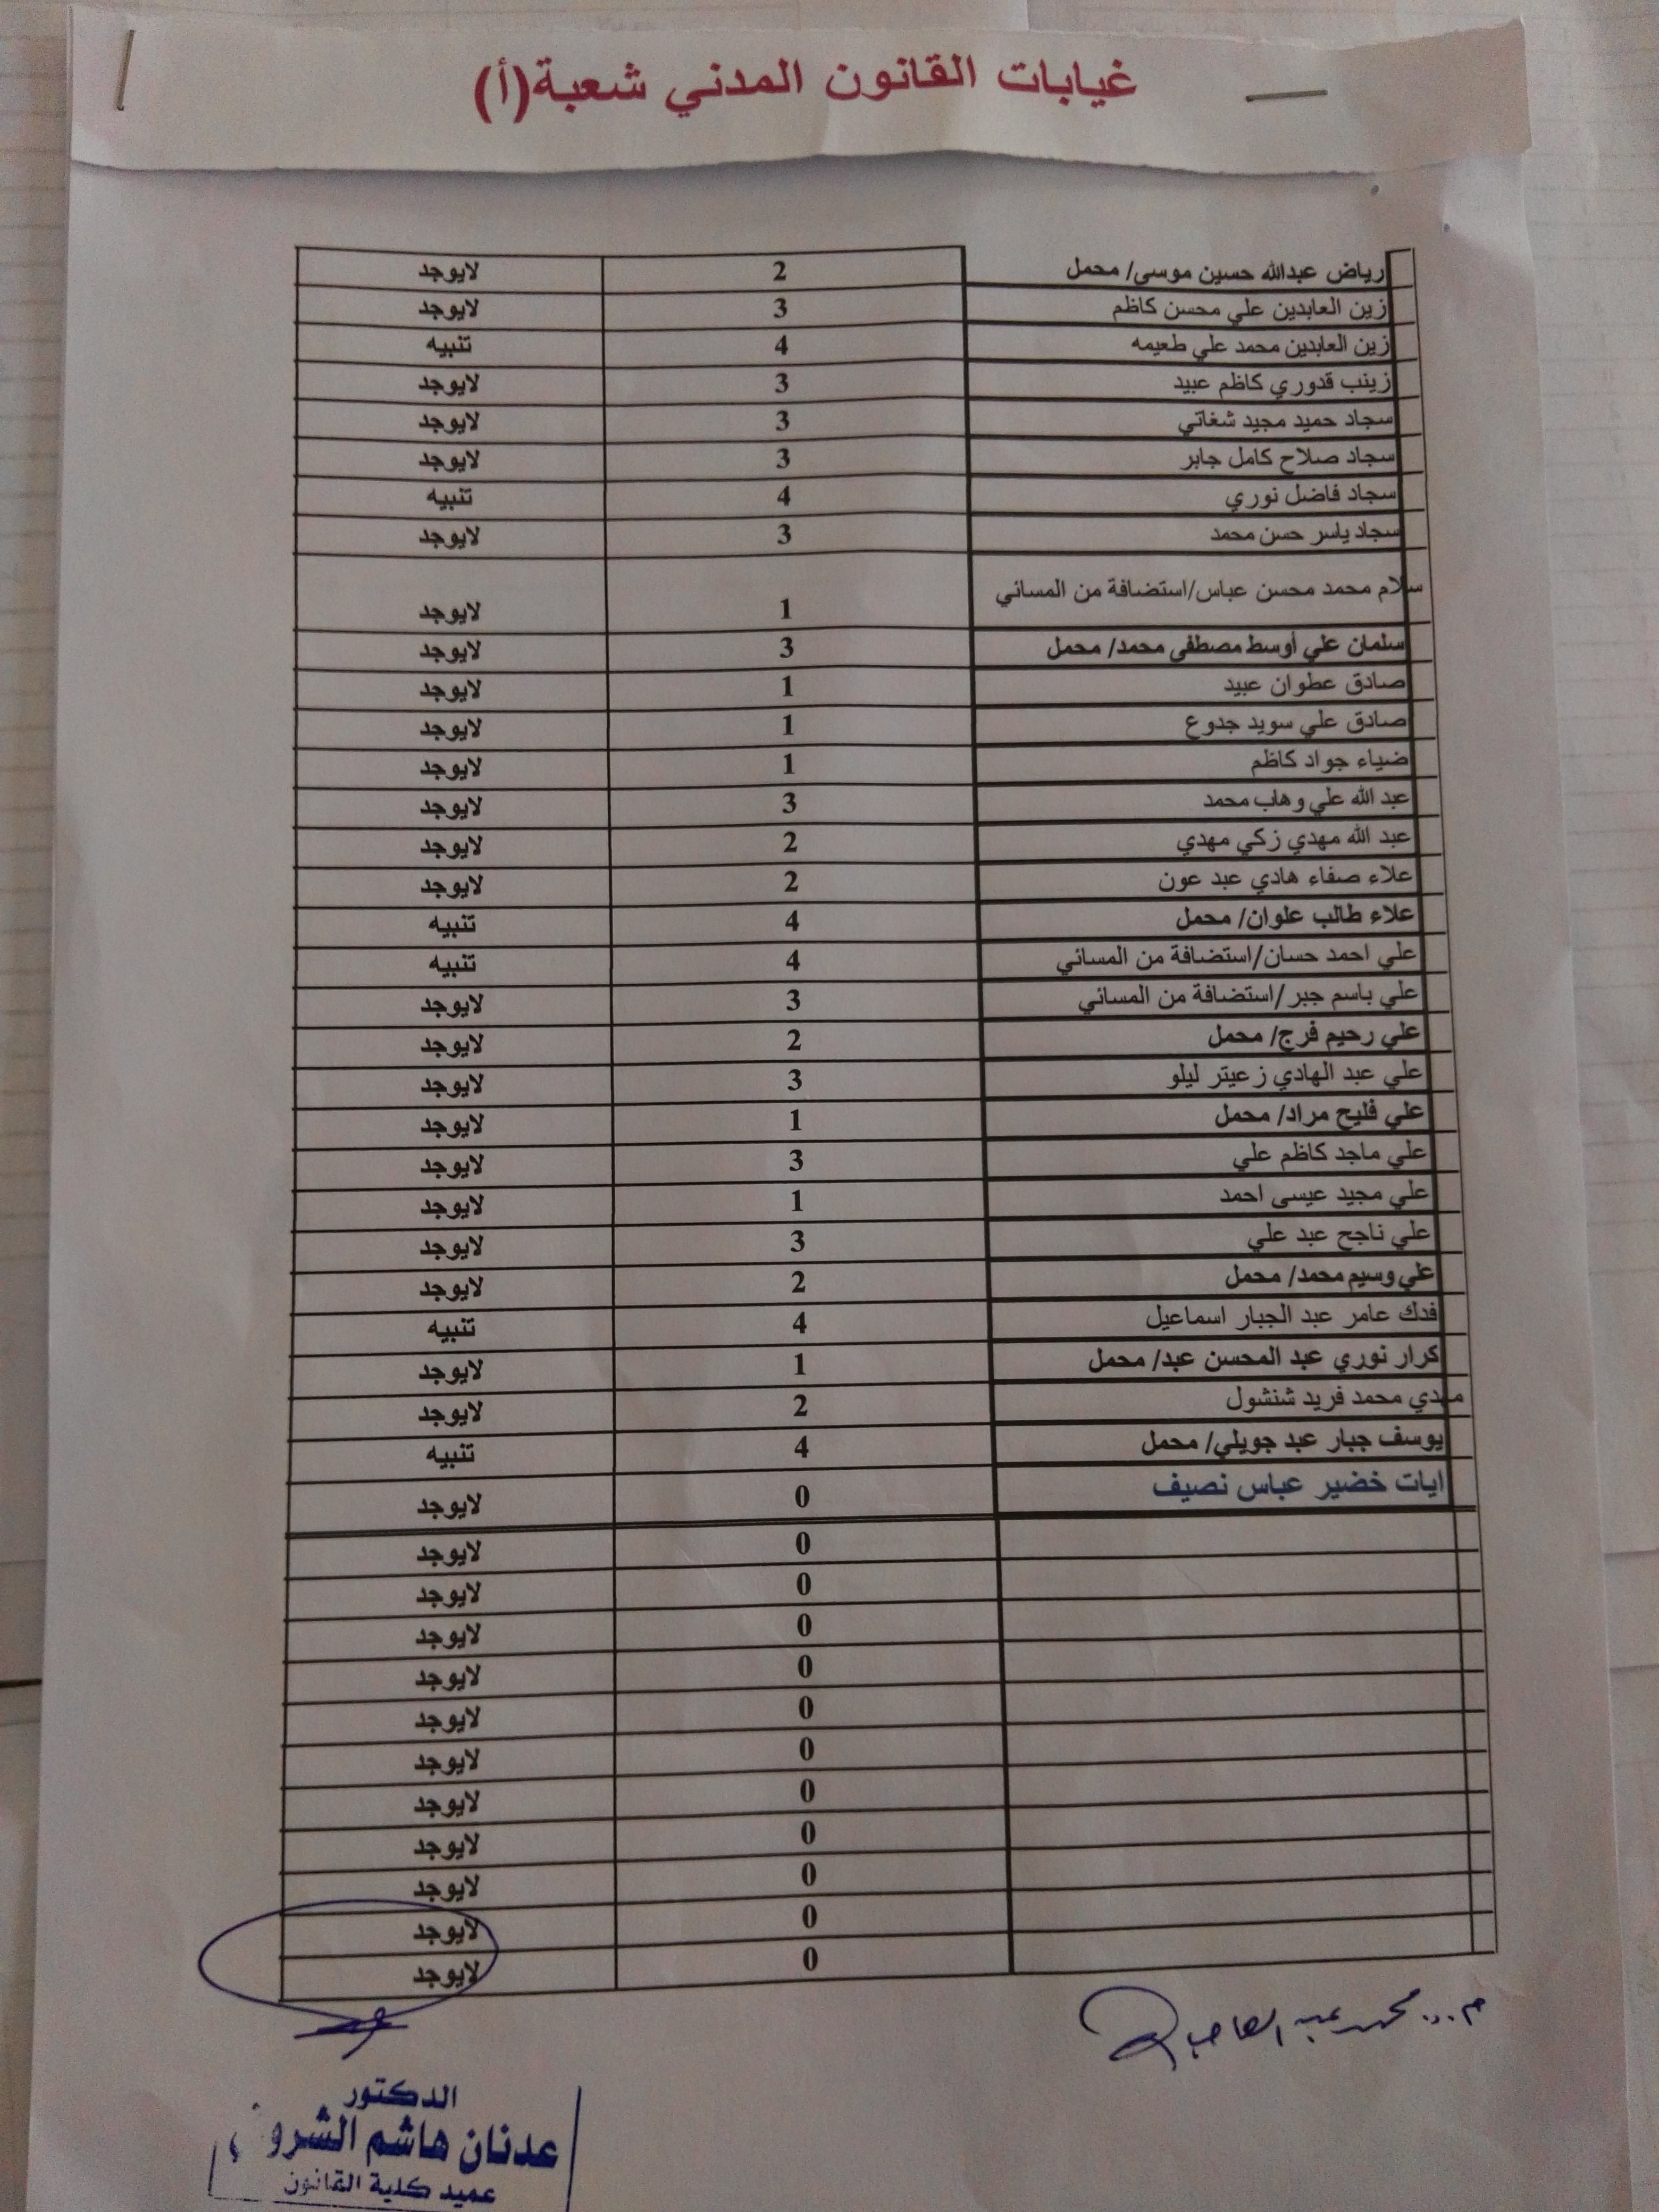 غيابات القانون المدني شعبة(أ)
رياض عبدالله حسين موسى/ محمل 2 لايوجد
زين العابدين علي محسن كاظم 3 لايوجد
زين العابدين محمد علي طعيمه 4 تنبيه
زينب قدوري كاظم عبيد 3 لايوجد
سجاد حميد مجيد شغاتي 3 لايوجد
سجاد صلاح كامل جابر 3 لايوجد
سجاد فاضل نوري 4 تنبيه
سجاد ياسر حسن محمد 3 لايوجد
سلام محمد محسن عباس/استضافة من المسائي 1 لايوجد
سلمان علي أوسط مصطفى محمد/ محمل 3 لايوجد
صادق عطوان عبيد 1 لايوجد
صادق علي سويد جدوع 1 لايوجد
ضياء جواد كاظم 1 لايوجد
عبد الله علي وهاب محمد 3 لايوجد
عبد الله مهدي زكي مهدي 2 لايوجد
علاء صفاء هادي عبد عون 2 لايوجد
علاء طالب علوان/ محمل 4 تنبيه
علي احمد حسان/استضافة من المسائي 4 تنبيه
علي باسم جبر/استضافة من المسائي 3 لايوجد
علي رحيم فرج/ محمل 2 لايوجد
علي عبد الهادي زعيتر ليلو 3 لايوجد
علي فليح مراد/ محمل 1 لايوجد
علي ماجد كاظم علي 3 لايوجد
علي مجيد عيسى احمد 1 لايوجد
علي ناجح عبد علي 3 لايوجد
علي وسيم محمد/ محمل 2 لايوجد
فدك عامر عبد الجبار اسماعيل 4 تنبيه
كرار نوري عبد المحسن عبد/ محمل 1 لايوجد
مهدي محمد فريد شنشول 2 لايوجد
يوسف جبار عبد جويلي/ محمل 4 تنبيه
ايات خضير عباس نصيف 0 لايوجد
0 لايوجد
0 لايوجد
0 لايوجد
0 لايوجد
0 لايوجد
0 لايوجد
0 لايوجد
0 لايوجد
0 لايوجد
0 لايوجد
0 لايوجد
محمد عبد الصاحب
الدكتور
عدنان هاشم
عميد كلية القانون